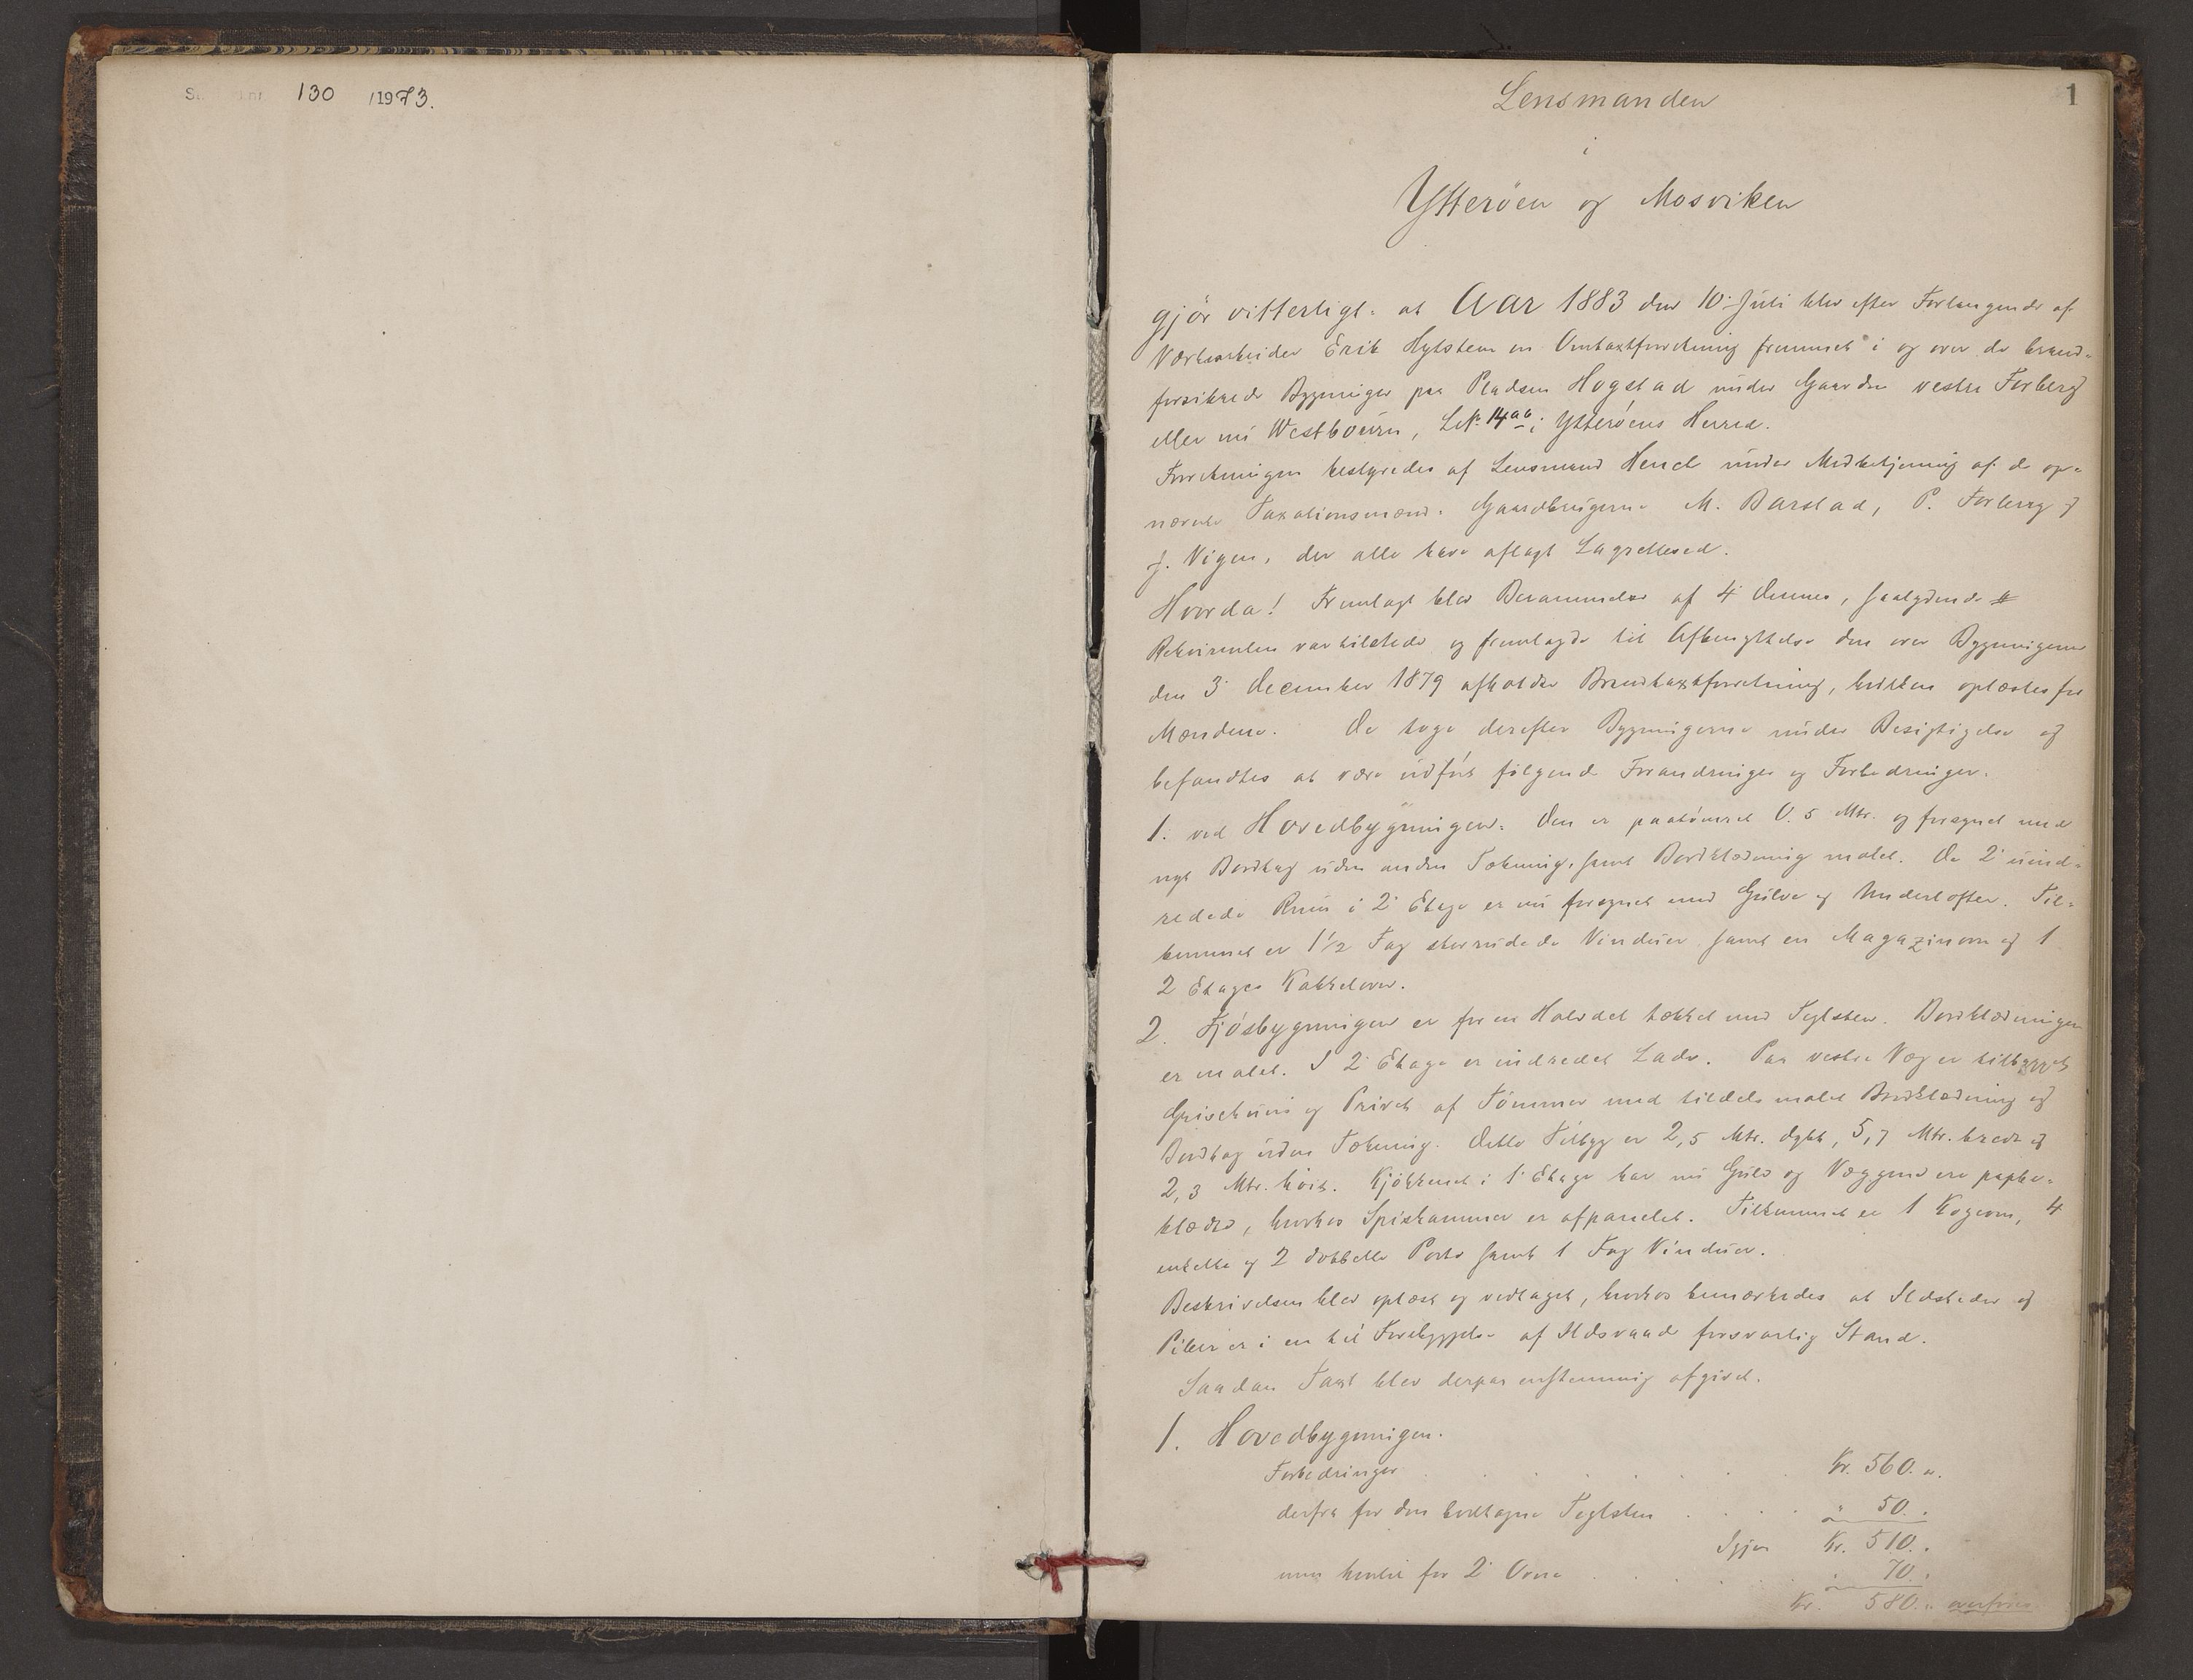 130 /1973.
1
Lensmanden
i
Ytterøen og Mosviken
gjør vitterligt: at Aar 1883 den 10. Juli blev efter Forlangende af
Værkarbeider Erik Hylstem en Omtaxtforretning fremmet i og over de brand-
forsikrede Bygninger paa Pladsen Hogstad under Gaarden vestre Forberg
eller nu Westbourn, L.No. 14ab i Ytterøens Herred.
Forretningen bestyredes af Lensmand Hench under Medbetjening af de op-
nævnte Taxationsmænd: Gaardbrugerne M. Barstad, P. Forberg og
J. Vigen, der alle have aflagt Lagretteed.
Hvorda! Fremlagt blev Berammelse af 4 dennes, saalydende #
Rekvirenten var tilstede og fremlagde til Afbenyttelse den over Bygningerne
den 3. december 1879 afholdte Brandtaxtforretning, hvilken oplæstes for
Mændene. De toge derefter Bygningerne under Besigtigelse og
befandtes at være udført følgende Forandringer og Forbedringer.
1. ved Hovedbygningen: Den er paatømret 0.5 Mtr. og forsynet med
nyt Bordtag uden anden Tækning, samt Bordklædning malet. De 2 uind-
redede Rum i 2. Etage er nu forsynet med Gulve og Underlofter. Til-
kommet er 1 1/2 Fag storrudede Vinduer samt en Magazinovn og 1
2 Etages Kakkelovn.
2. Fjøsbygningen er for en Halvdel tækket med Teglsten. Bordklædningen
er malet. I 2. Etage er indredet Lade. Paa vestre Væg er tilbygget
Grisehuus og Privet af Tømmer med tildels malet Bordklædning og
Bordtag uden Tækning. Dette Tilbyg er 2,5 Mtr. dybt, 5,7 Mtr. bredt og
2,3 Mtr. høit. Kjøkkenet i 1. Etage har nu Gulv og Væggene ere papbe-
klædte, hvorhos Spiskammer er afpanelet. Tilkommet er 1 Kogeovn, 4
enkelte og 2 dobbelte Porte samt 1 Fag Vinduer.
Beskrivelsen blev oplæst og vedtaget, hvorhos bemærkedes at Ildsteder og
Piber er i en til Forebyggelse af Ildsvaade forsvarlig Stand.
Saadan Taxt blev derpaa enstemmig afgivet.
1. Hovedbygningen.
Forbedringer . . . . . . Kr. 560. "
derfra for den borttagne Teglsten . . . " 50. "
Igjen Kr. 510. "
men hertil for 2 Ovne . . . . " 70. "
Kr. 580. " overføres